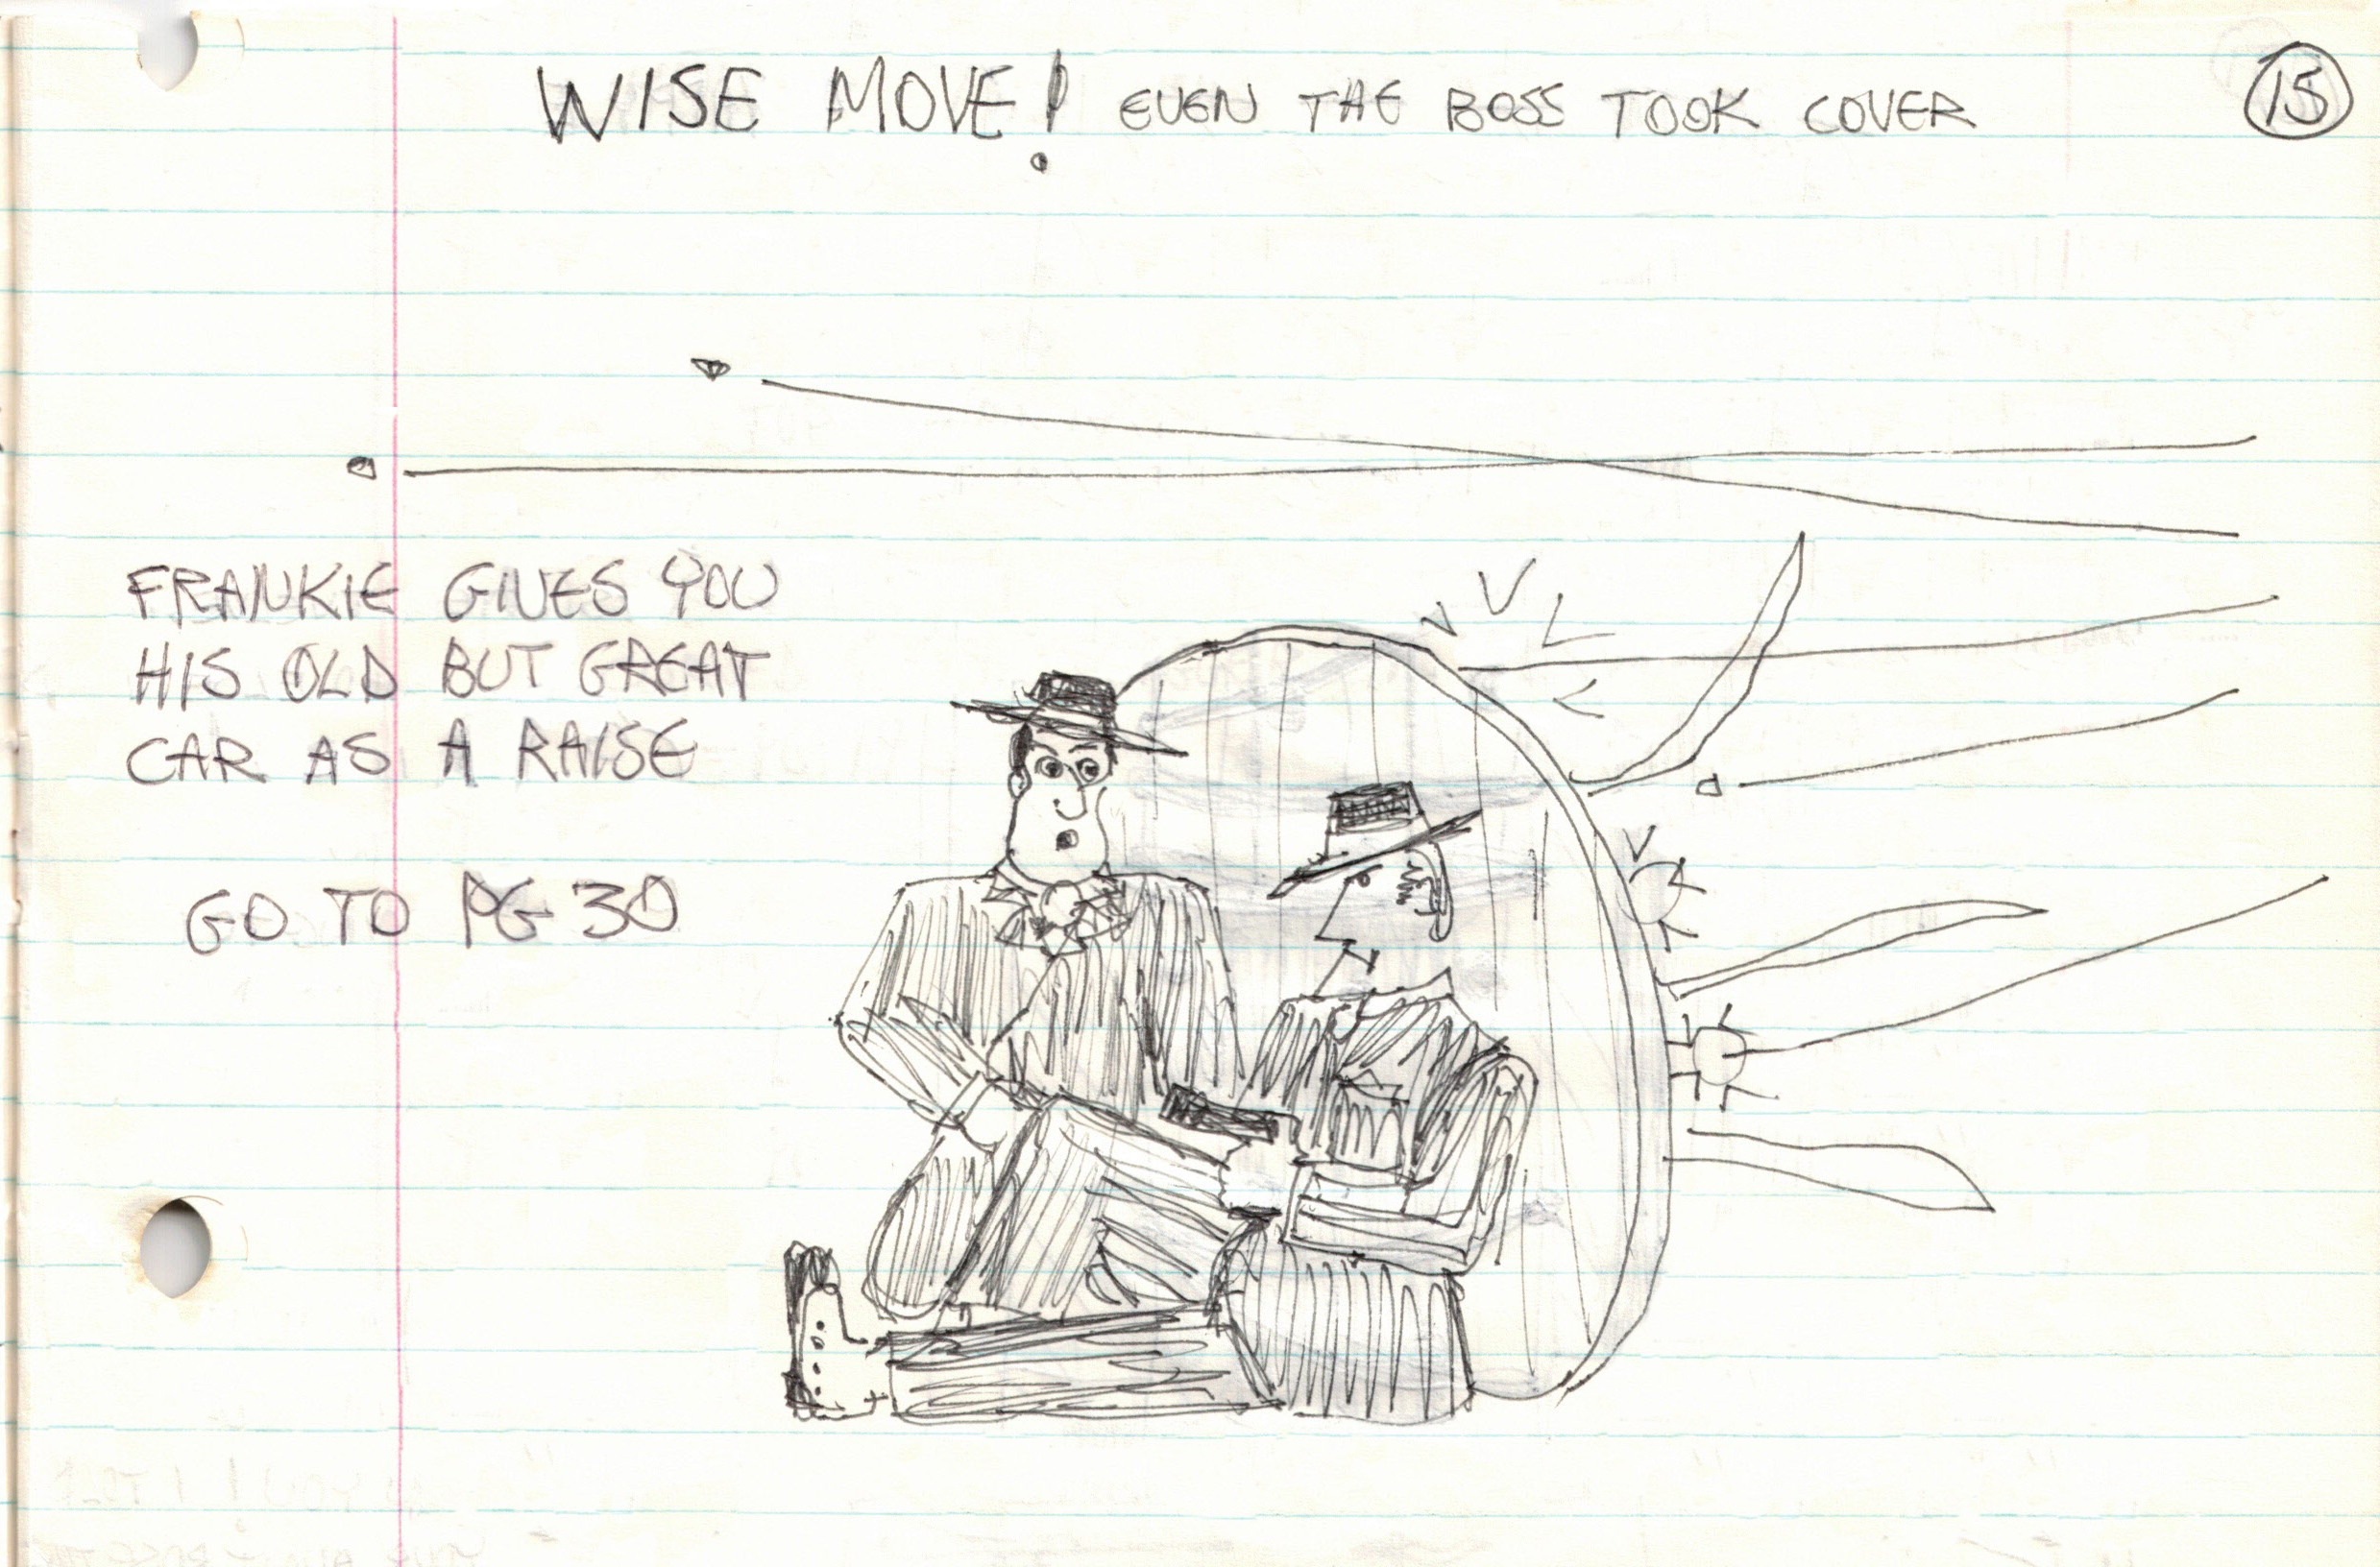 WISE MOVE! EVEN THE BOSS TOOK COVER
15
FRANKIE GIVES YOU
HIS OLD BUT GREAT
CAR AS A RAISE
GO TO PG 30